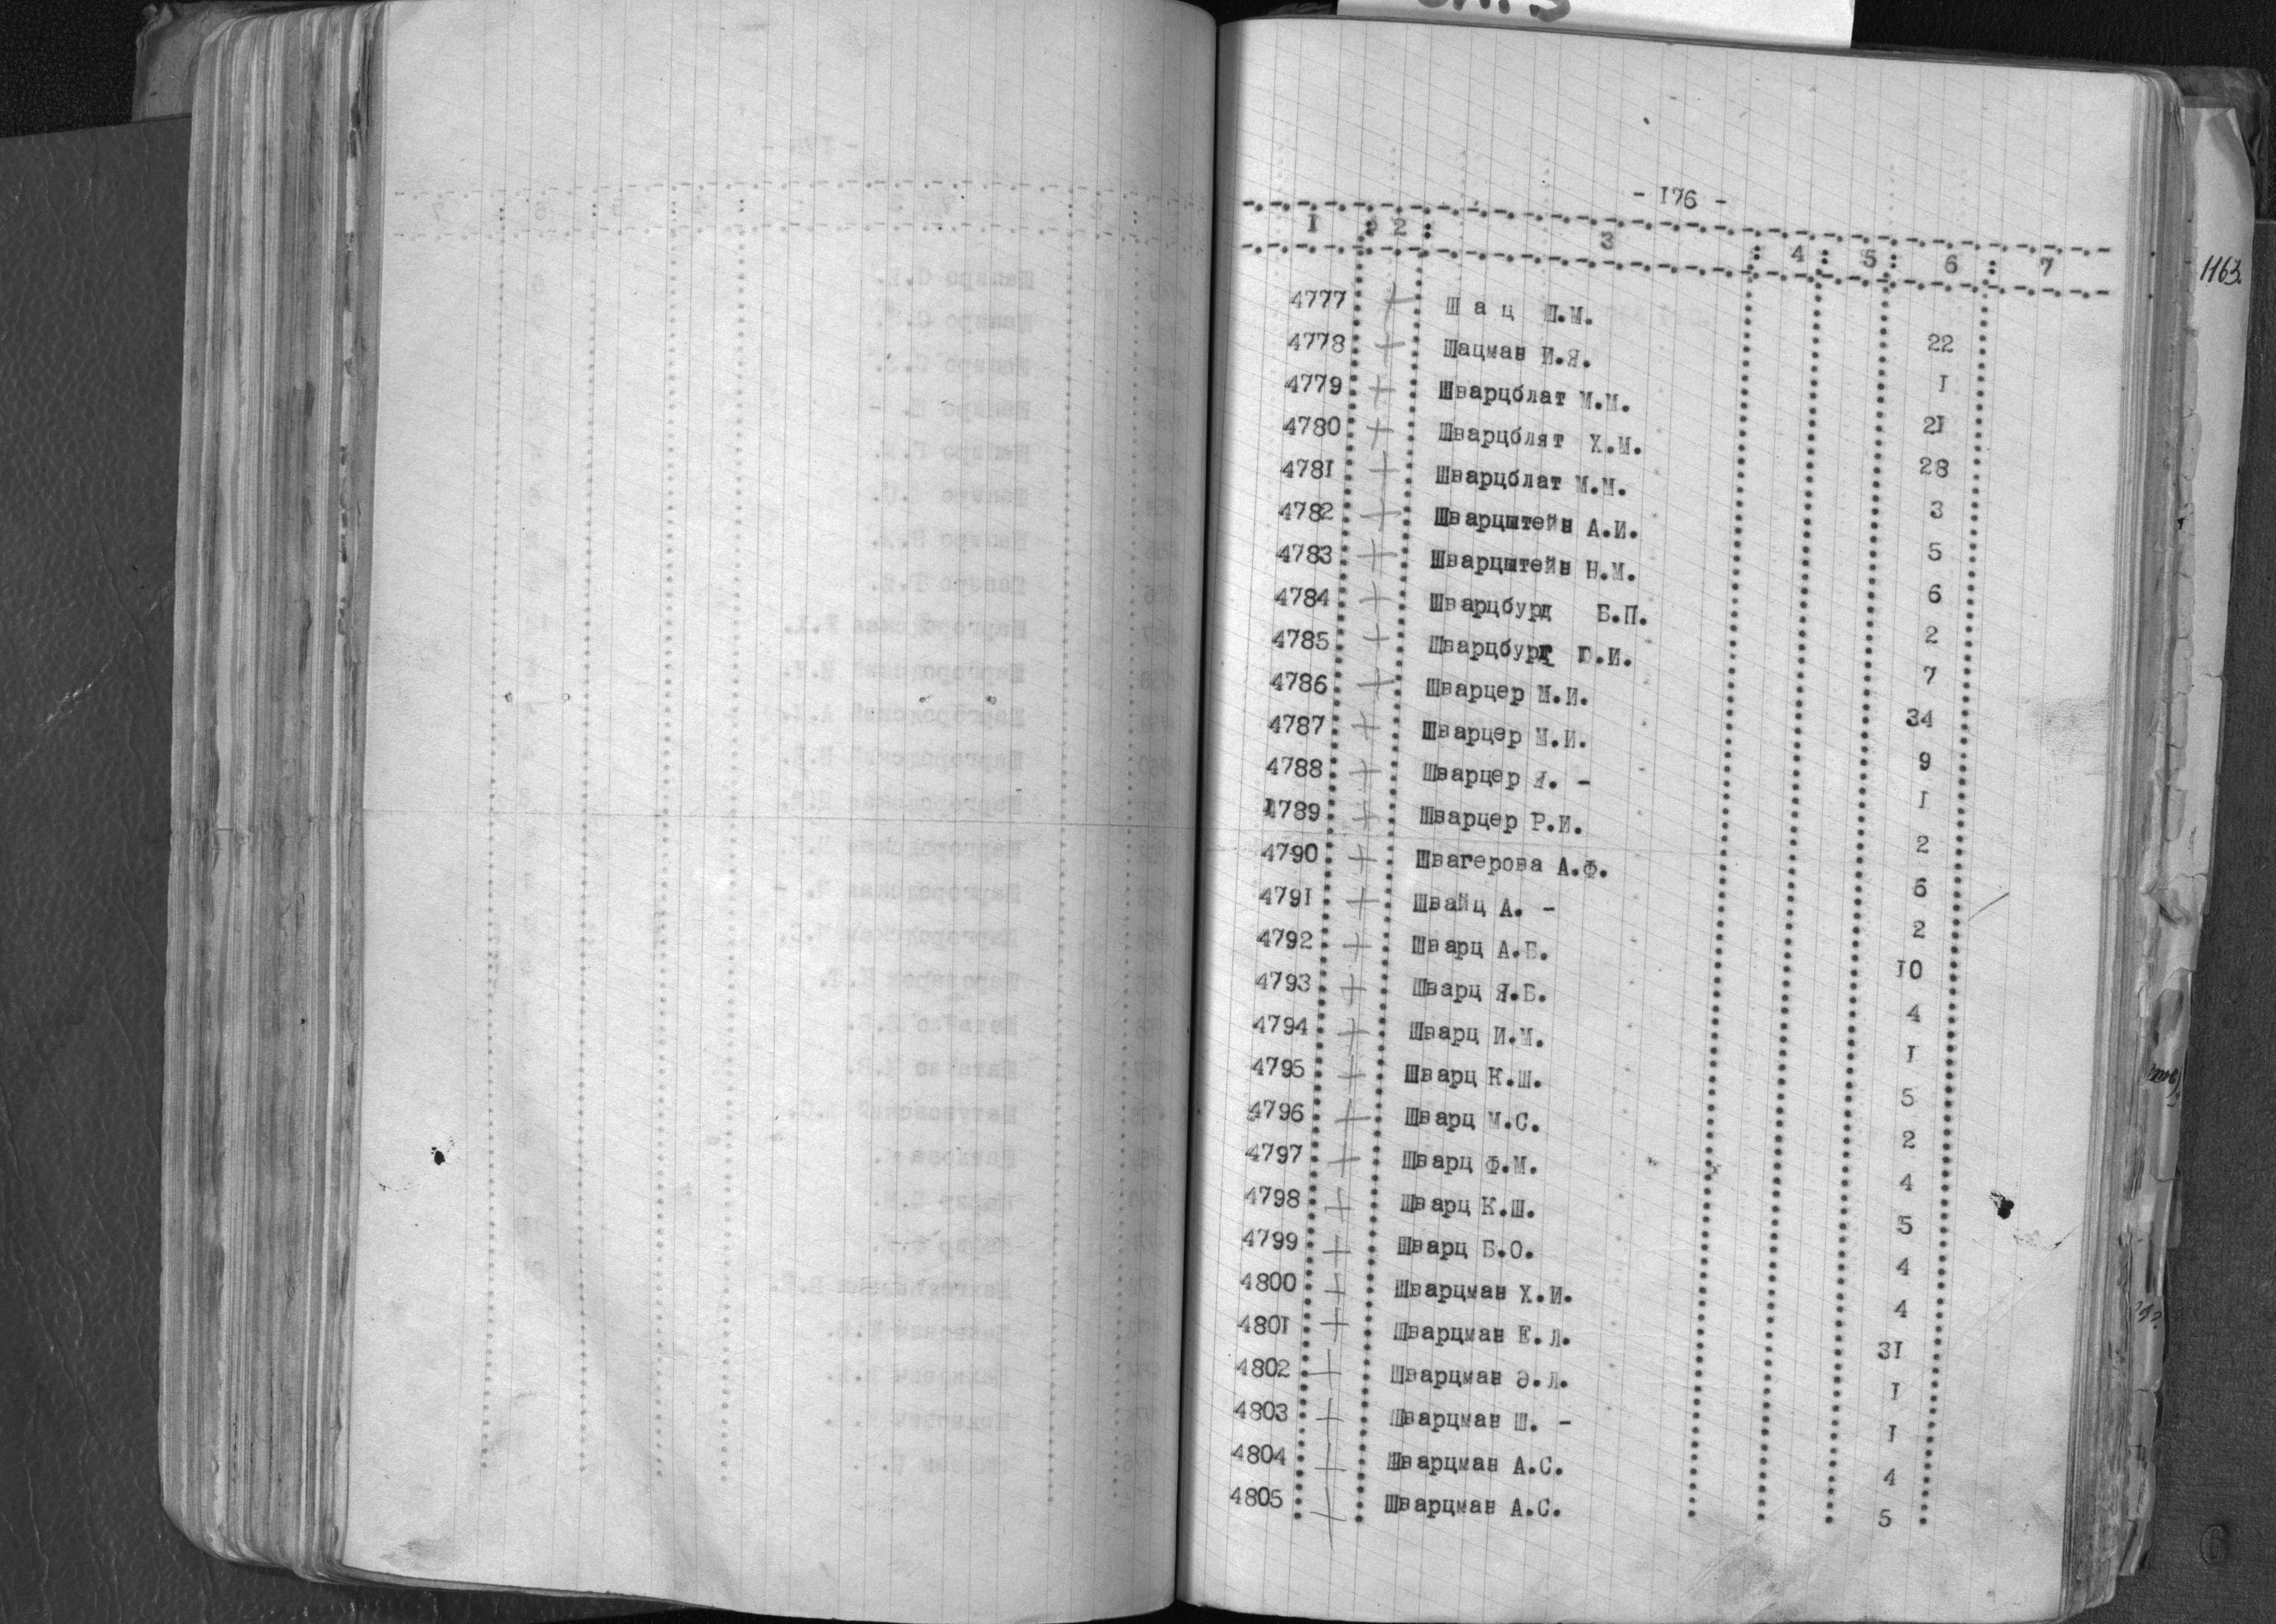 - I76 -
I : 2 : 3 : 4 : 5 : 6 : 7
1163.
4777 + Ш а ц Ш.М. 22
4778 + Шацман И.Я. I
4779 + Шварцблат М.М. 2I
4780 + Шварцблят Х.М. 28
478I + Шварцблат М.М. 3
4782 + Шварцштейн А.И. 5
4783 + Шварцштейн Н.М. 6
4784 + Шварцбурд Б.П. 2
4785 + Шварцбург Ю.И. 7
4786 + Шварцер М.И. 34
4787 + Шварцер М.И. 9
4788 + Шварцер Я. - I
4789 + Шварцер Р.И. 2
4790 + Швагерова А.Ф. 6
479I + Швайц А. - 2
4792 + Шварц А.Б. I0
4793 + Шварц Я.Б. 4
4794 + Шварц И.М. I
4795 + Шварц К.Ш. 5
4796 + Шварц М.С. 2
4797 + Шварц Ф.М. 4
4798 + Шварц К.Ш. 5
4799 + Шварц Б.О. 4
4800 + Шварцман Х.И. 4
480I + Шварцман Е.Л. 3I
4802 + Шварцман Э.Л. I
4803 + Шварцман Ш. - I
4804 + Шварцман А.С. 4
4805 + Шварцман А.С. 5